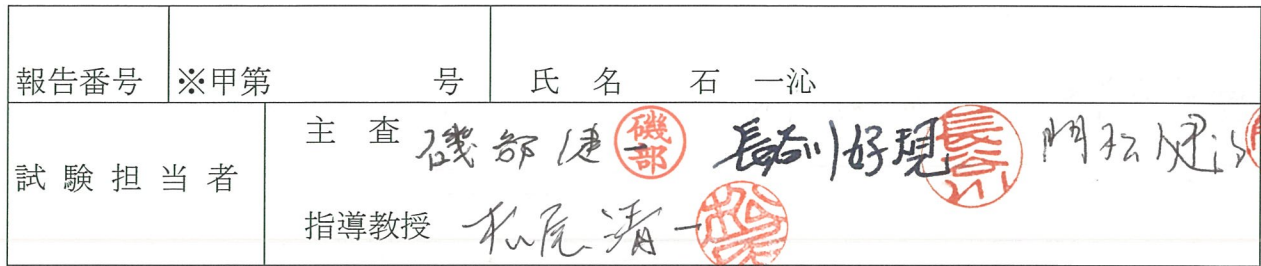 報告番号 ※甲第 号 氏 名 石 一沁
試 験 担 当 者
主 査 磯部健一 磯部 長谷川好規 長谷川 門松健治
指導教授 松尾清一 松尾